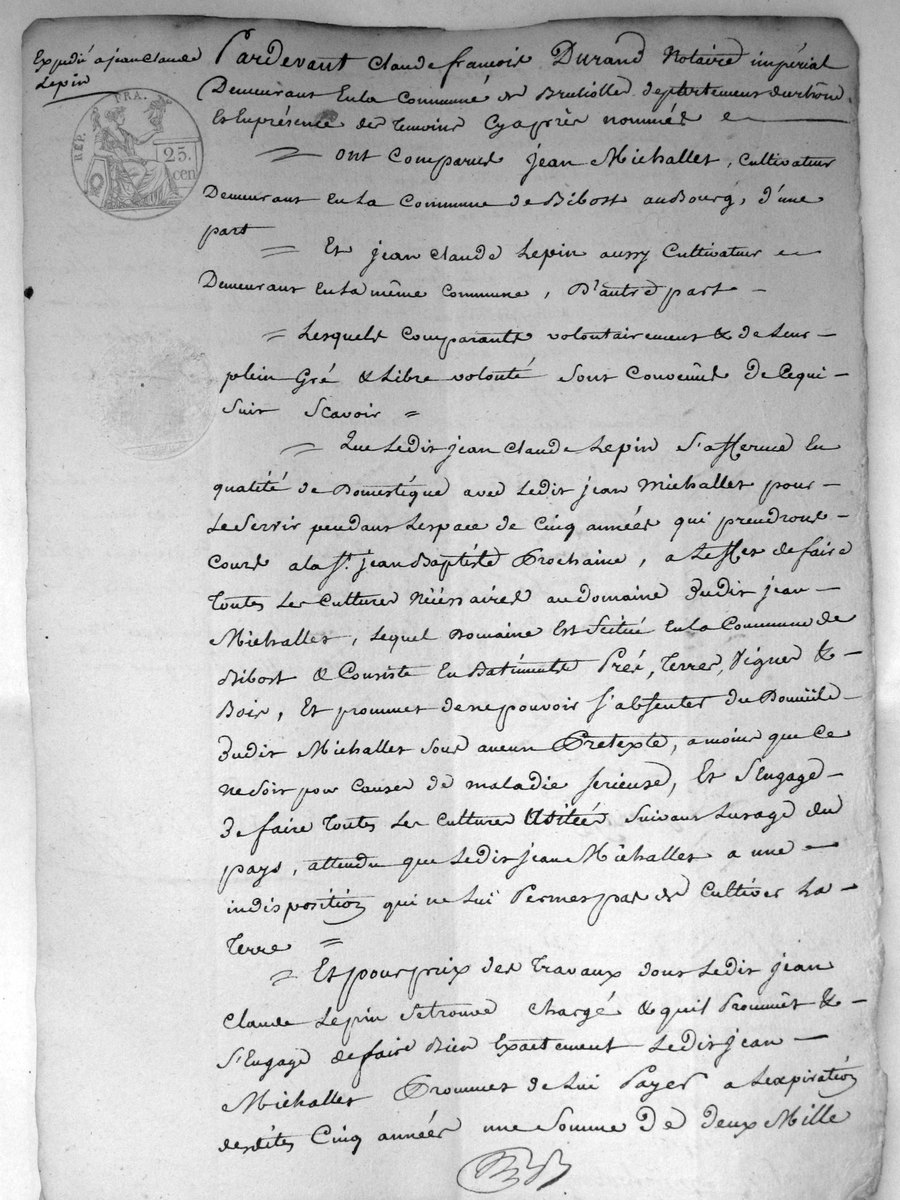 Expedié a jean Claude
Lepin
REP. FRA.
25.
cen
Pardevant Claude francois Durand Notaire impérial
Demeurant En La Communé de Brulliolle departement du rhône
Et En présence des temoins Cy après nommés
ont Comparus jean Michallet, Cultivateur
Demeurant En La Commune de Bibost au Bourg, d'une
part
Et jean Claude Lepin aussy Cultivateur
Demeurant En La même Commune, D'autre part
Lesquels Comparants volontairement & de Leur
plein Gré & Libre volonté sont Convenus de Ce qui
suit Scavoir
Que Ledit jean Claude Lepin S'afferme En
qualité de Domestique avec Ledit jean Michallet pour
Le Servir pendant Lespace de Cinq années qui prendront
Cours a la St. jean Baptiste Prochaine, a Leffet de faire
toutes Les Cultures Néüssaires au domaine Dudit jean
Michallet, Lequel Domaine Est Scitué En La Commune de
Bibost & Consiste En Batiments Préé, Terres, Vignes &
Bois, Et prommet de ne pouvoir S'absenter du Domiüle
Dudit Michallet sous aucun Pretexte, a moins que Ce
ne soit pour Causes de maladie serieuse, Et S'Engage
De faire toutes Les Cultures Usitées suivant Lusage du
pays, attendu que Ledit jean Michallet a une
indisposition qui ne Lui Permes pas de Cultiver La
Terre
Et pour prix des Travaux dont Ledit jean
Claude Lepin Se trouve Chargé & quil Prommêt &
S'Engage de faire Bien Exactement Ledit jean
Michallet Prommet de Lui Payer a Lexpiration
desdites Cinq années une Somme De deux Mille